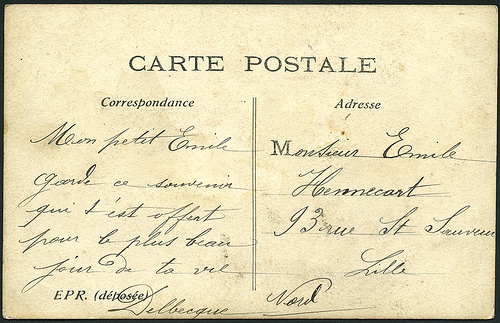 CARTE POSTALE
Correspondance
Adresse
Mon petit Emile
garde ce souvenir
qui t'est offert
pour le plus beau
jour de ta vie
Delbecque
EPR. (déposée)
Monsieur Emile
Hennecart
93 rue St Sauveur
Lille
Nord